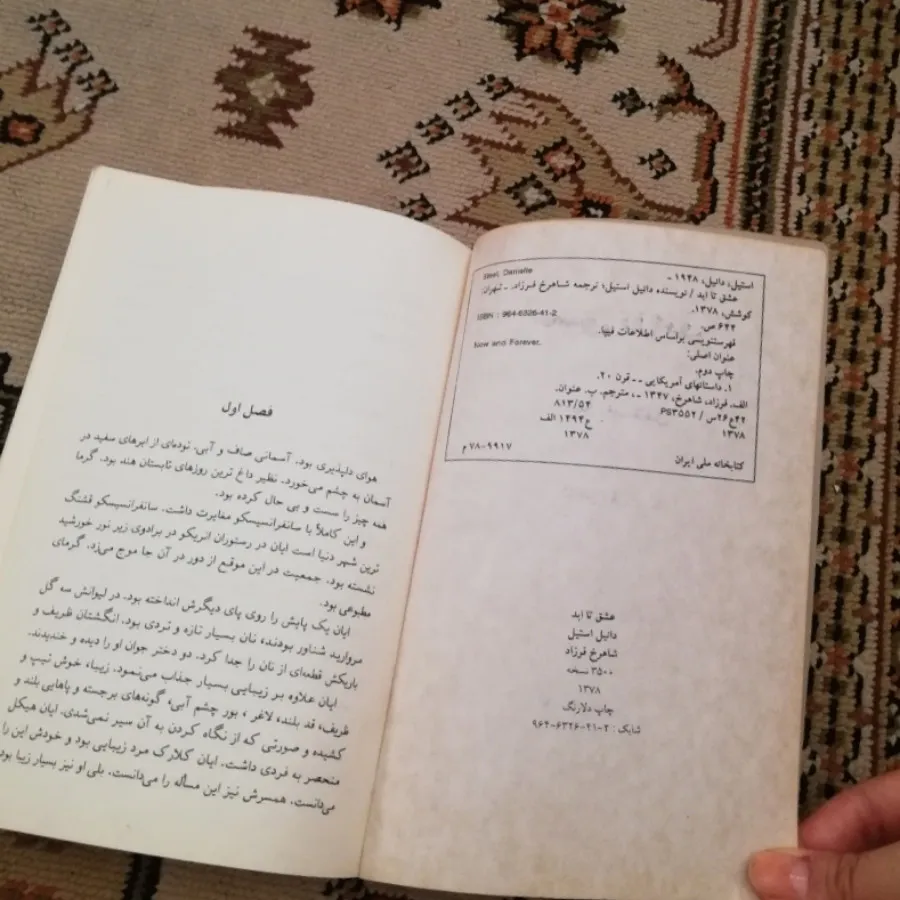 استیل، دانیل، ۱۹۴۸ -
Steel, Danielle
عشق تا ابد / نویسنده دانیل استیل؛ ترجمه شاهرخ فرزاد. - تهران:
کوشش، ۱۳۷۸.
۶۴۴ ص.
ISBN : 964-6326-41-2
فهرستنویسی براساس اطلاعات فیپا.
عنوان اصلی:
Now and Forever.
چاپ دوم.
۱. داستانهای آمریکایی -- قرن ۲۰.
الف. فرزاد، شاهرخ، ۱۳۴۷ -، مترجم. ب. عنوان.
۸۱۳/۵۴
PS۳۵۵۲ / ۴۲ع۲۶س
ع۴۹۴ الف
۱۳۷۸
۱۳۷۸
کتابخانه ملی ایران
۷۸-۹۹۱۷ م
عشق تا ابد
دانیل استیل
شاهرخ فرزاد
۳۵۰۰ نسخه
۱۳۷۸
چاپ دلارنگ
شابک : ۲-۴۱-۶۳۲۶-۹۶۴
فصل اول
هوای دلپذیری بود. آسمانی صاف و آبی. توده‌ای از ابرهای سفید در
آسمان به چشم می‌خورد. نظیر داغ ترین روزهای تابستان هند بود. گرما
همه چیز را سست و بی حال کرده بود.
و این کاملاً با سانفرانسیسکو مغایرت داشت. سانفرانسیسکو قشنگ
ترین شهر دنیا است ایان در رستوران انریکو در برادوی زیر نور خورشید
نشسته بود. جمعیت در این موقع از دور در آن جا موج می‌زد. گرمای
مطبوعی بود.
ایان یک پایش را روی پای دیگرش انداخته بود. در لیوانش سه گل
مروارید شناور بودند، نان بسیار تازه و تردی بود. انگشتان ظریف و
باریکش قطعه‌ای از نان را جدا کرد. دو دختر جوان او را دیده و خندیدند.
ایان علاوه بر زیبایی بسیار جذاب می‌نمود. زیبا، خوش تیپ و
ظریف، قد بلند، لاغر ، بور چشم آبی، گونه‌های برجسته و پاهایی بلند و
کشیده و صورتی که از نگاه کردن به آن سیر نمی‌شدی. ایان هیکل
منحصر به فردی داشت. ایان کلارک مرد زیبایی بود و خودش این را
می‌دانست. همسرش نیز این مسأله را می‌دانست. بلی او نیز بسیار زیبا بود